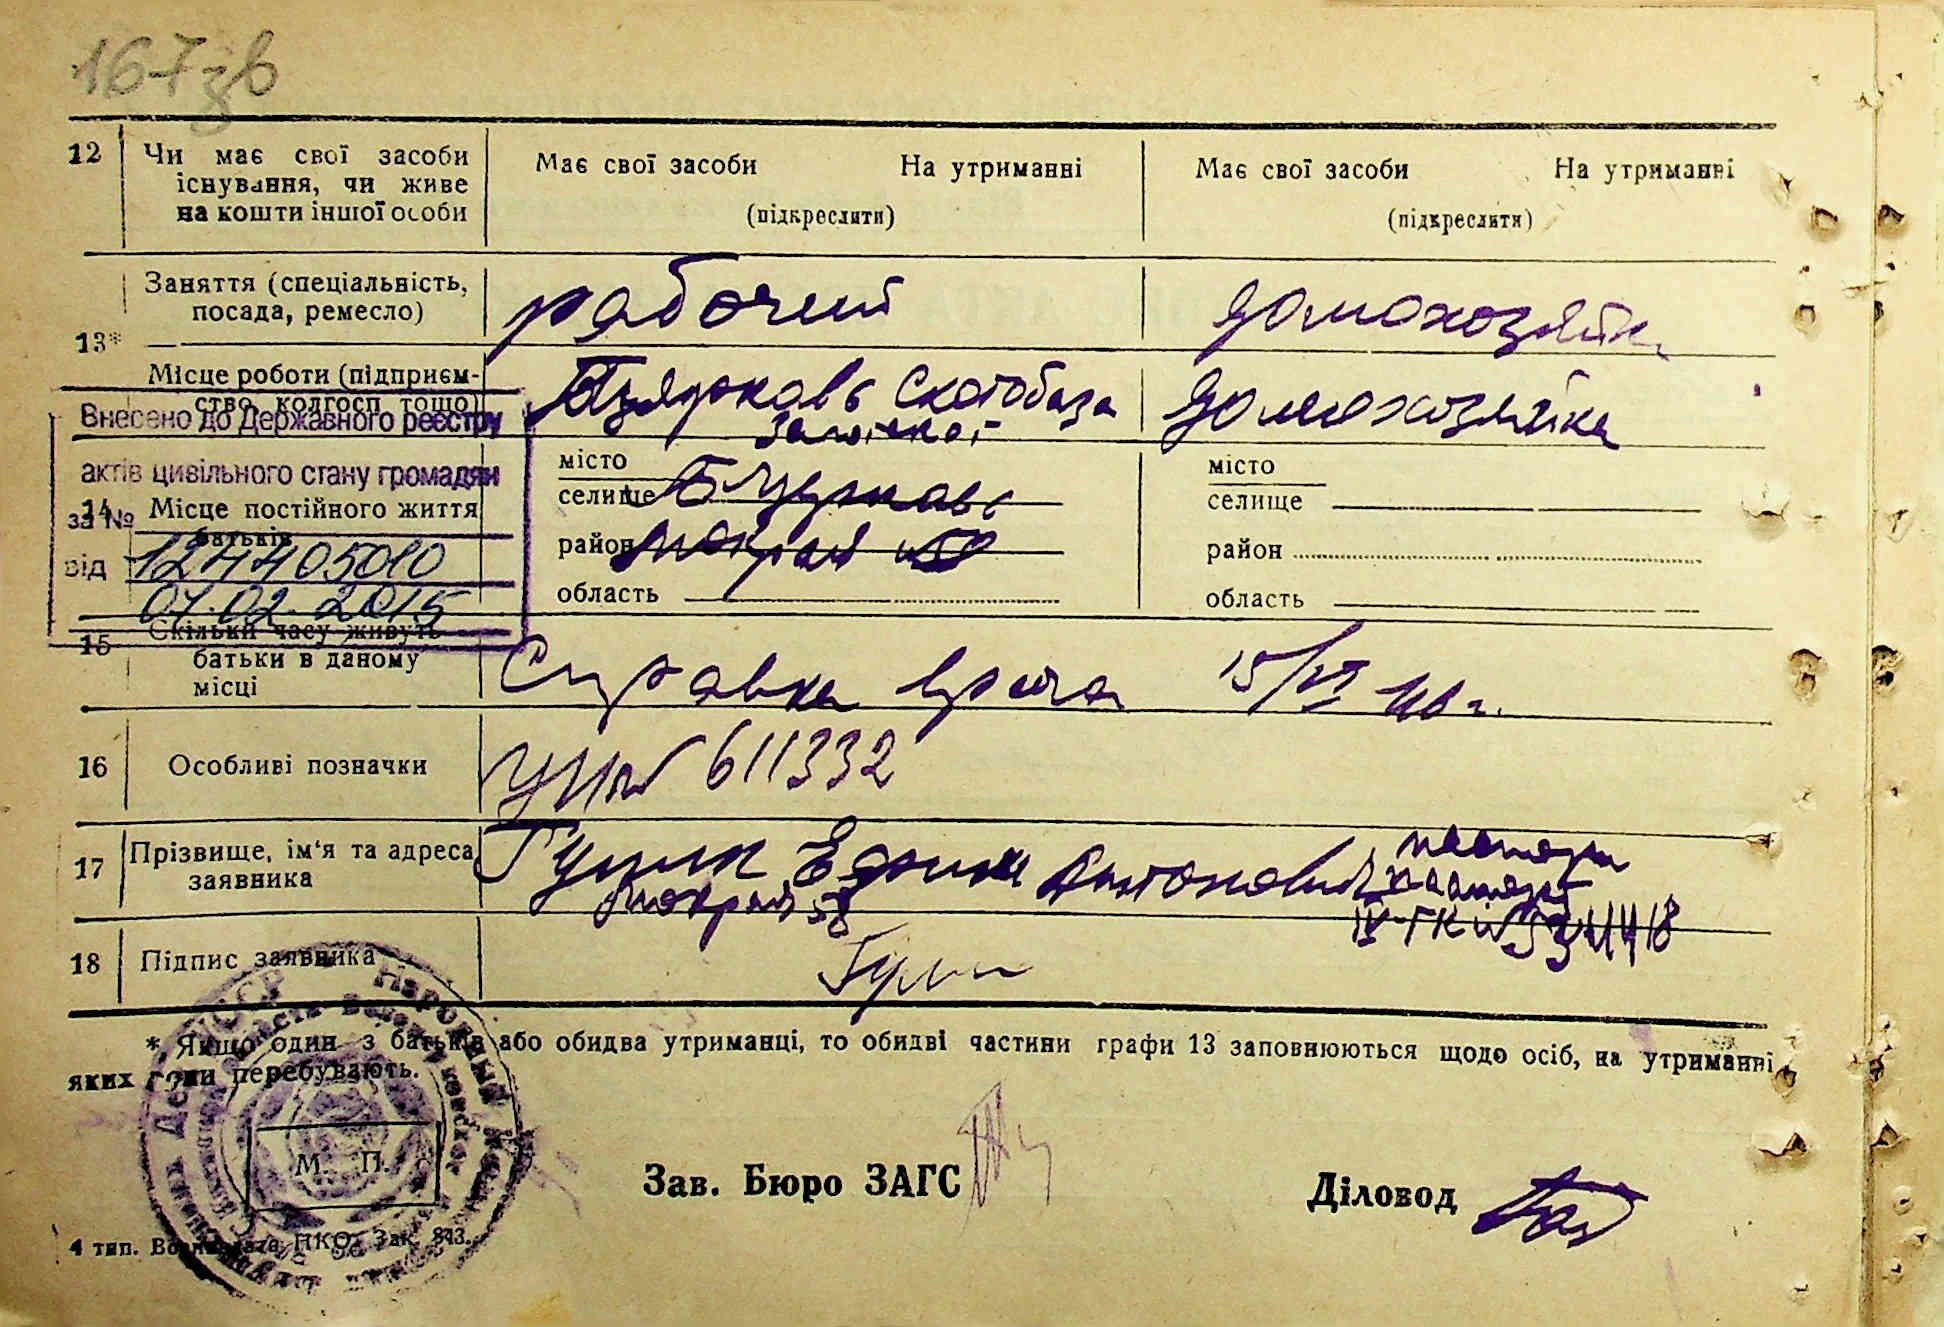 167зв
12 Чи має свої засоби існування, чи живе на кошти іншої особи
Має свої засоби На утриманні
(підкреслити)
Має свої засоби На утриманні
(підкреслити)
13* Заняття (спеціальність, посада, ремесло)
рабочий
домохозяйк
Місце роботи (підприємство, колгосп тощо)
Скотобаза
домохозяйка
Внесено до Державного реєстру
актів цивільного стану громадян
за №
від
07.02.2015
14 Місце постійного життя батьків
місто
селище
район
область
місто
селище
район
область
15 Скільки часу живуть батьки в даному місці
Справка врача 15/VI 46 г.
16 Особливі позначки
611332
17 Прізвище, ім'я та адреса заявника
Антонович
18 Підпис заявника
* Якщо один з батьків або обидва утриманці, то обидві частини графи 13 заповнюються щодо осіб, на утриманні
яких вони перебувають.
М. П.
Зав. Бюро ЗАГС
Діловод
4 тип. НКО. Зак. 813.